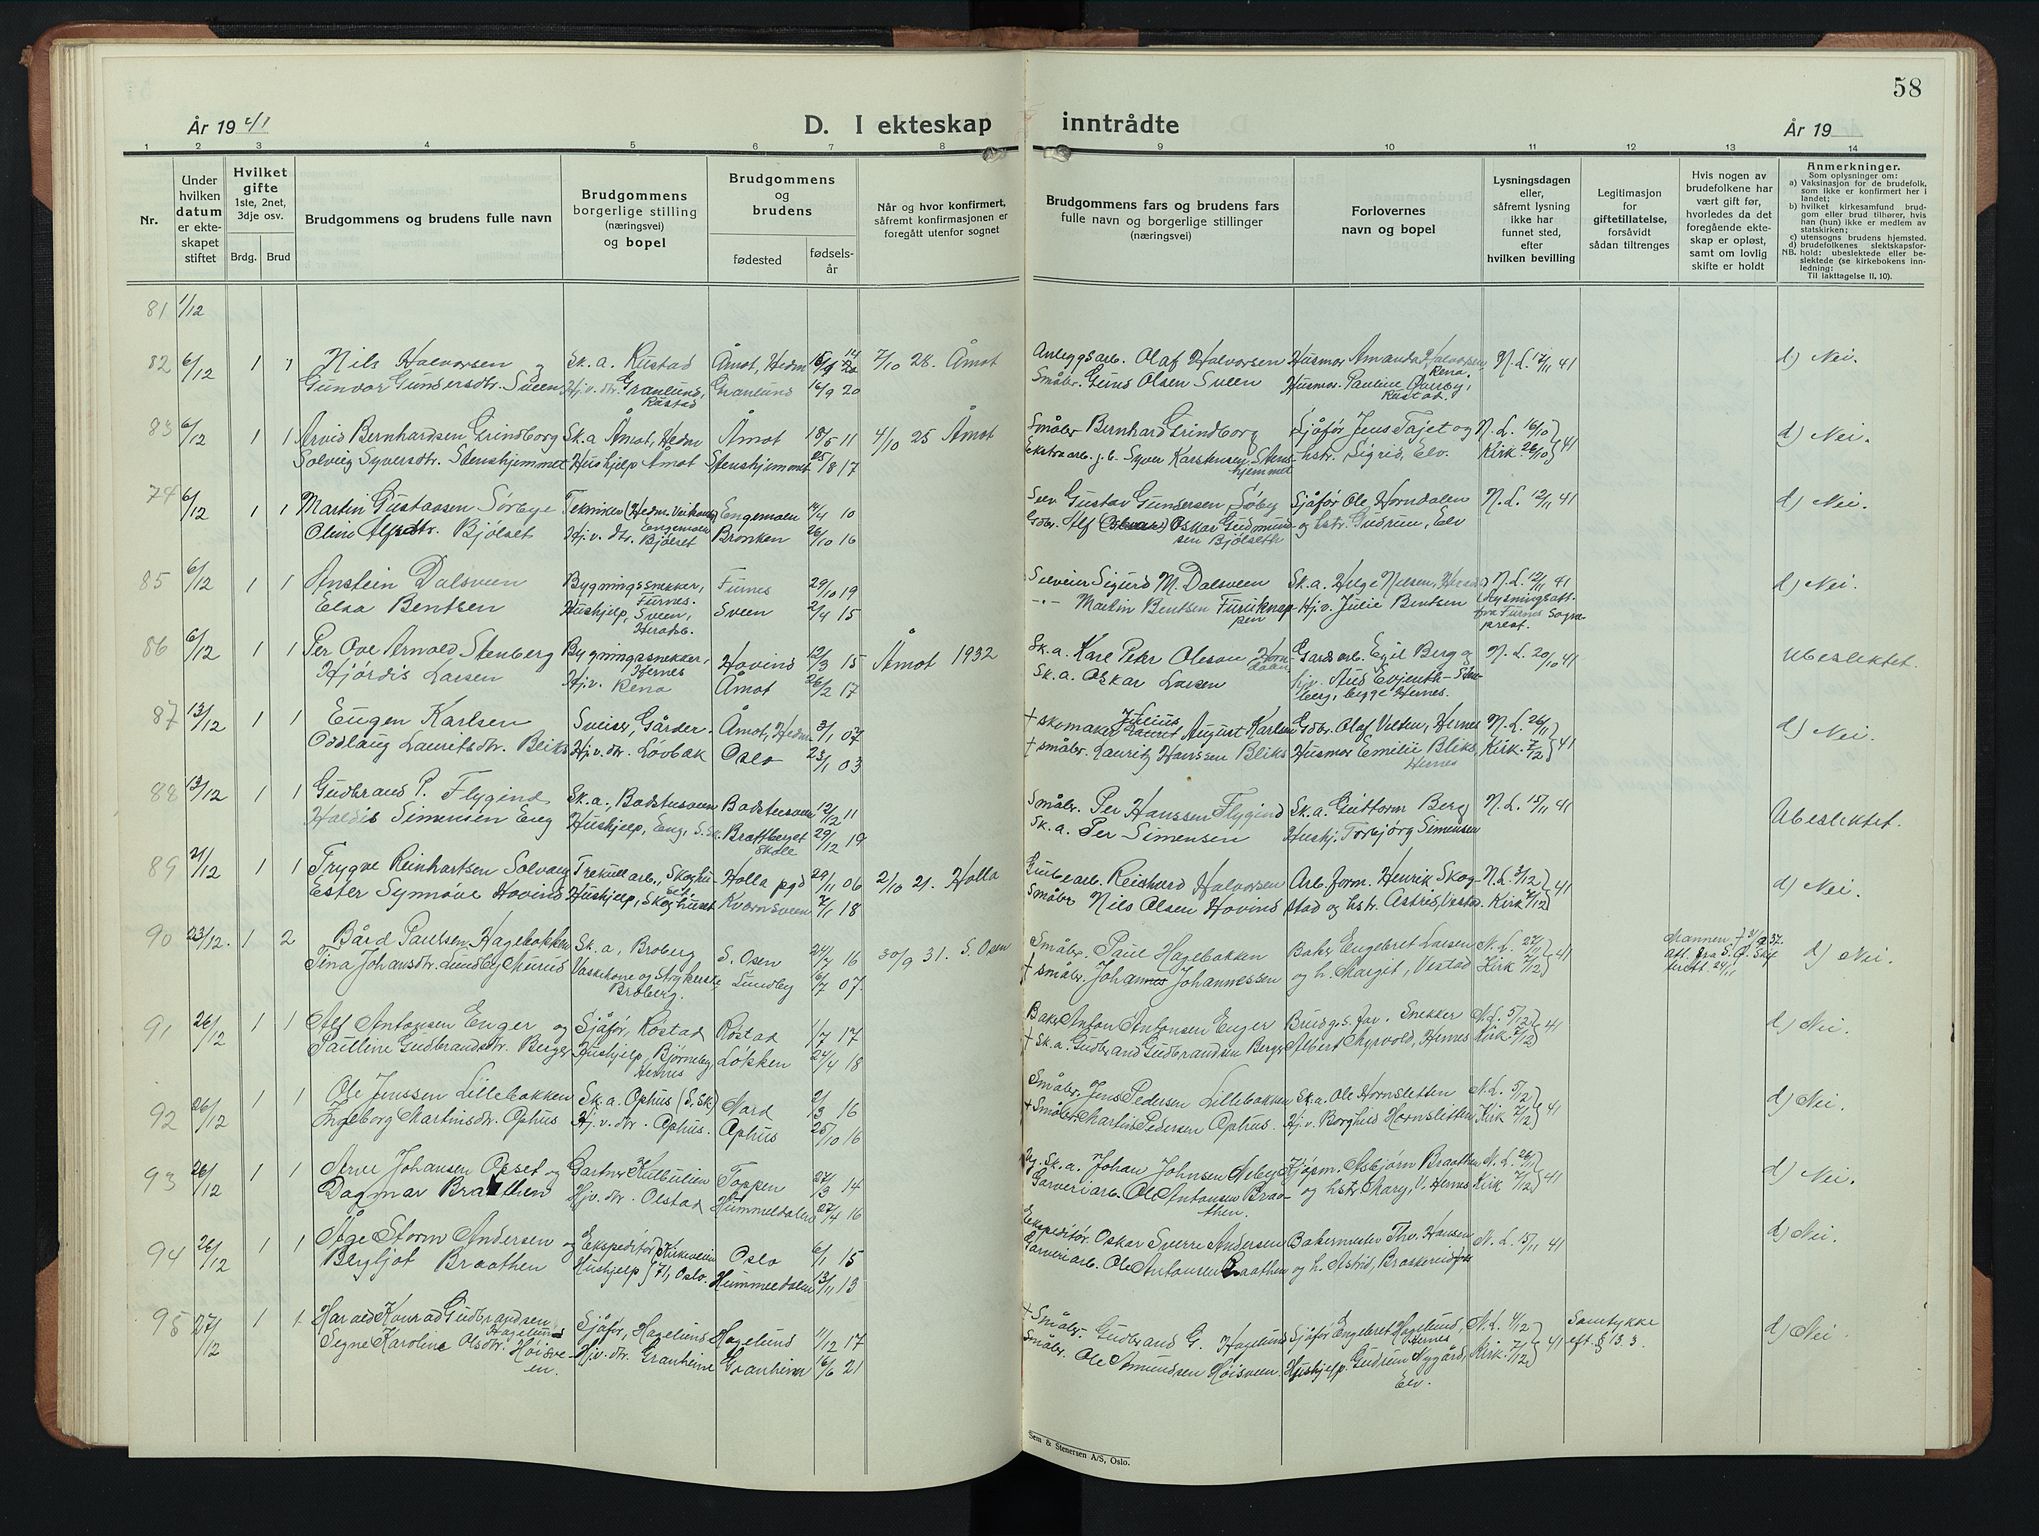 58
År 19 41
D. I ekteskap inntrådte
År 19
1 2 3 4 5 6 7 8 9 10 11 12 13 14
Nr.
Under hvilken datum er ekteskapet stiftet
Hvilket gifte 1ste, 2net, 3dje osv.
Brdg. Brud
Brudgommens og brudens fulle navn
Brudgommens borgerlige stilling (næringsvei) og bopel
Brudgommens og brudens
fødested
fødselsår
Når og hvor konfirmert, såfremt konfirmasjonen er foregått utenfor sognet
Brudgommens fars og brudens fars fulle navn og borgerlige stillinger (næringsvei)
Forlovernes navn og bopel
Lysningsdagen eller, såfremt lysning ikke har funnet sted, efter hvilken bevilling
Legitimasjon for giftetillatelse, forsåvidt sådan tiltrenges
Hvis nogen av brudefolkene har vært gift før, hvorledes da det foregående ekteskap er opløst, samt om lovlig skifte er holdt
Anmerkninger.
Som oplysninger om:
a) Vaksinasjon for de brudefolk, som ikke er konfirmert her i landet;
b) hvilket kirkesamfund brudgom eller brud tilhører, hvis han (hun) ikke er medlem av statskirken;
c) utensogns brudens hjemsted.
d) brudefolkenes slektskapsforhold: ubeslektede eller beslektede (se kirkebokens innledning:
NB. Til iakttagelse II. 10).
81 1/12
82 6/12 1 1 Nils Halvorsen og Sk. a. Rustad Åmot, Hedm 7/10 28. Åmot Anleggsarb. Olaf Halvorsen Husmor Amanda Halvorsen, Rena. N. L. 17/11 41 d) Nei.
Gunvor Gundersdtr. Sveen Hj. v. dtr. Granlund, Rustad Granlund 16/9 20 Småbr. Guns Olsen Sveen Husmor Pauline Øverby, Rustad.
83 6/12 1 1 Arvid Bernhardsen Grindborg Sk. a Åmot, Hedm Åmot 18/5 11 4/10 25 Åmot Småbr Bernhard Grindborg Sjåfør Jens Tajet og N. L. 16/10 41 d) Nei.
Solveig Syversdtr. Stenshjemmet Hushjelp Åmot Stenshjemmet 25/8 17 Ekstraarb. j.b. Syver Karstensen, Stenshjemmet hstr. Sigrid, Elv. Kirk. 26/10
74 6/12 1 1 Martin Gustavsen Sørbye Tekniker (Hedm. Veikontor) Engemoen Engemoen 14/4 10 Selv. Gustav Gundersen Søby Sjåfør Ole Horndalen N. L. 12/11 41 d) Nei.
Oline Alfsdtr. Bjølset Hj. v. dtr. Bjølset Bronken 26/10 16 Gbr. Alf Oskar Gudmundsen Bjølseth og hstr. Gudrun, Elv
85 6/12 1 1 Anstein Dalsveen Bygningssnekker, Furnes. Furnes 29/10 19 Selveier Sigurd M. Dalsveen Sk. a. Helge Nilsen, Heradsb. N. L. 12/11 41 d) Nei.
Elsa Bentsen Hushjelp, Sveen, Heradsb. Sveen 2/4 15 -"- Martin Bentsen Furuknappen Hj. v. Julie Bentsen (Lysningsatt. fra Furnes Sogneprest.
86 6/12 1 1 Per Ove Arnold Stenberg Bygningssnekker, Hernes Hovind 12/3 15 Åmot 1932 Sk. a. Karl Petr Olsson Gardsarb. Egil Berg og N. L. 20/10 41 Ubeslektet.
Hjørdis Larsen Hj. v. Rena Åmot 26/2 17 Sk. a. Oskar Larsen
87 13/12 1 1 Eugen Karlsen Sveiser, Gårder. Åmot, Hedm 3/1 07 + skomaker Julius August Karlsen Gbr. Olaf Velten, Hernes N. L. 26/11 41 d) Nei.
Oddlaug Lauritsdtr. Bliks Hj. v. dtr. Lovbak Oslo 23/1 03 + småbr. Lauritz Hanssen Bliks Husmor Emilie Bliks Hernes Kirk. 7/12
88 13/12 1 1 Gudbrand P. Flygind Sk. a., Badstusveen Badstusveen 12/2 11 Småbr. Per Hanssen Flygind Sk. a. Gudtorm Berg N. L. 15/11 41 Ubeslektet.
Haldis Simensen Eng Hushjelp, Eng, S. Sk. Brattberget Skole 29/12 19 Sk. a. Per Simensen Hushj. Torbjørg Simensen
89 21/12 1 1 Trygve Reinhartsen Solvang Trekullarb., Skoghuset Holla pgd 29/11 06 2/10 21. Holla Grubearb. Reichard Halvorsen Arb. form. Henrik Skogstad N. L. 3/12 41 d) Nei.
Ester Synnøve Hovind Hushjelp, Skoghuset Kvernsveen 7/1 18 Småbr Nils Olsen Hovind og hstr. Astrid, Vestad. Kirk 7/12
90 23/12. 1 2 Bård Paulsen Hagebakken Sk. a, Broberg S. Osen 24/7 16 30/9 31. S. Osen Småbr. Paul Hagebakken Baker Engebret Larsen N. L. 27/11 41 Mannen + 3/9 37. Att. fra S. Ø. Skifterett. 24/11 d) Nei.
Tina Johansdtr. Lundby Murud Vaskekone og Strykerske Broberg. Lundby 6/7 07. + småbr. Johannes Johannessen og h. Margit, Vestad Kirk 7/12
91 26/12 1 1 Alf Antonsen Enger og Sjåfør, Røstad Røstad 1/7 17 Baker Anton Antonsen Enger Brudg. s. far. Snekker N. L. 5/12 41 d) Nei.
Pauline Gudbrandsdtr. Berger Hushjelp, Bjørneby, Hernes Løkken 24/4 18 + Sk. a. Gudbrand Gudbrandsen Berger Albert Myrvold, Hernes Kirk 7/12
92 26/12 1 1 Ole Jenssen Lillebakken Sk. a. Ophus (S. Sk.) Nord 2/3 16 Småbr. Jens Pedersen Lillebakken Sk. a. Ole Hornsletten N. L. 5/12 41 d) Nei.
Ingeborg Martinsdtr. Ophus Hj. v. dtr. Ophus. Ophus 25/10 16 + Småbr. Martin Pedersen Ophus. Hj. v. Borghild Hornsletten Kirk 7/12
93 26/12 1 1 Arve Johansen Osset og Gartner Toppen 27/3 14 Sk. a. Johan Johnsen Kjøpm. Asbjørn Braathen N. L. 26/11 41 d) Nei.
Dagmar Braathen Hj. v. dtr. Olstad Hummeldalen 27/4 16 Garveriarb. Ole Antonsen Braathen. og hstr. Mary, V. Hernes Kirk 7/12
94 26/12 1 1 Åge Storm Andersen og Ekspeditør, Kirkeveien Oslo 6/1 15 Ekspeditør. Oskar Sverre Andersen Bakermester Thv. Hansen N. L. 15/11 41 d) Nei.
Bergljot Braathen Hushjelp 71, Oslo. Hummeldalen 13/11 13 Garveriarb. Ole Antonsen Braathen og h. Astrid,
95 27/12 1 1 Harald Konrad Gudbrandsen Hagelund Sjåfør, Hagelund Hagelund 11/12 17 + Småbr. Gudbrand G. Hagelund Sjåfør Engebret Hagelund, Hernes N. L. 4/12 41 Samtykke eft. § 13. 3. d) Nei
Signe Karoline Olsdtr. Høisveen. Hj. v. dtr. Granheim Granheim 16/6 21 Småbr. Ole Amundsen Høisveen. Hushjelp. Gudrun Nygård, Elv. Kirk. 7/12
Sem & Stenersen A/S, Oslo.